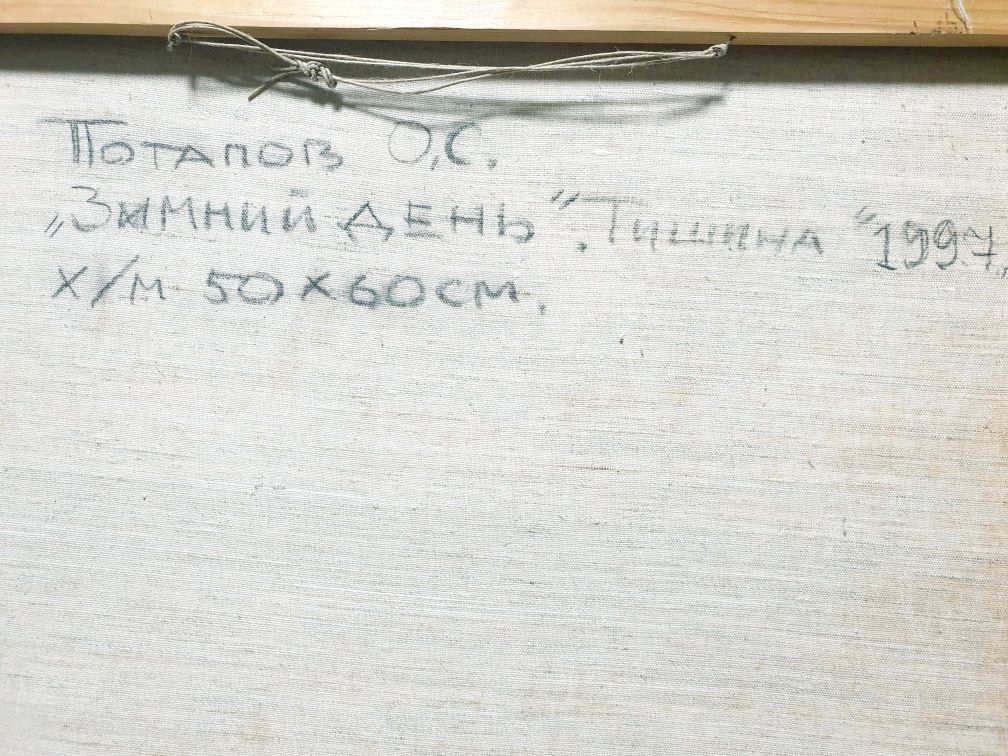 Потапов О.С.
„Зимний день". Тишина "1997.
х/м 50х60см.